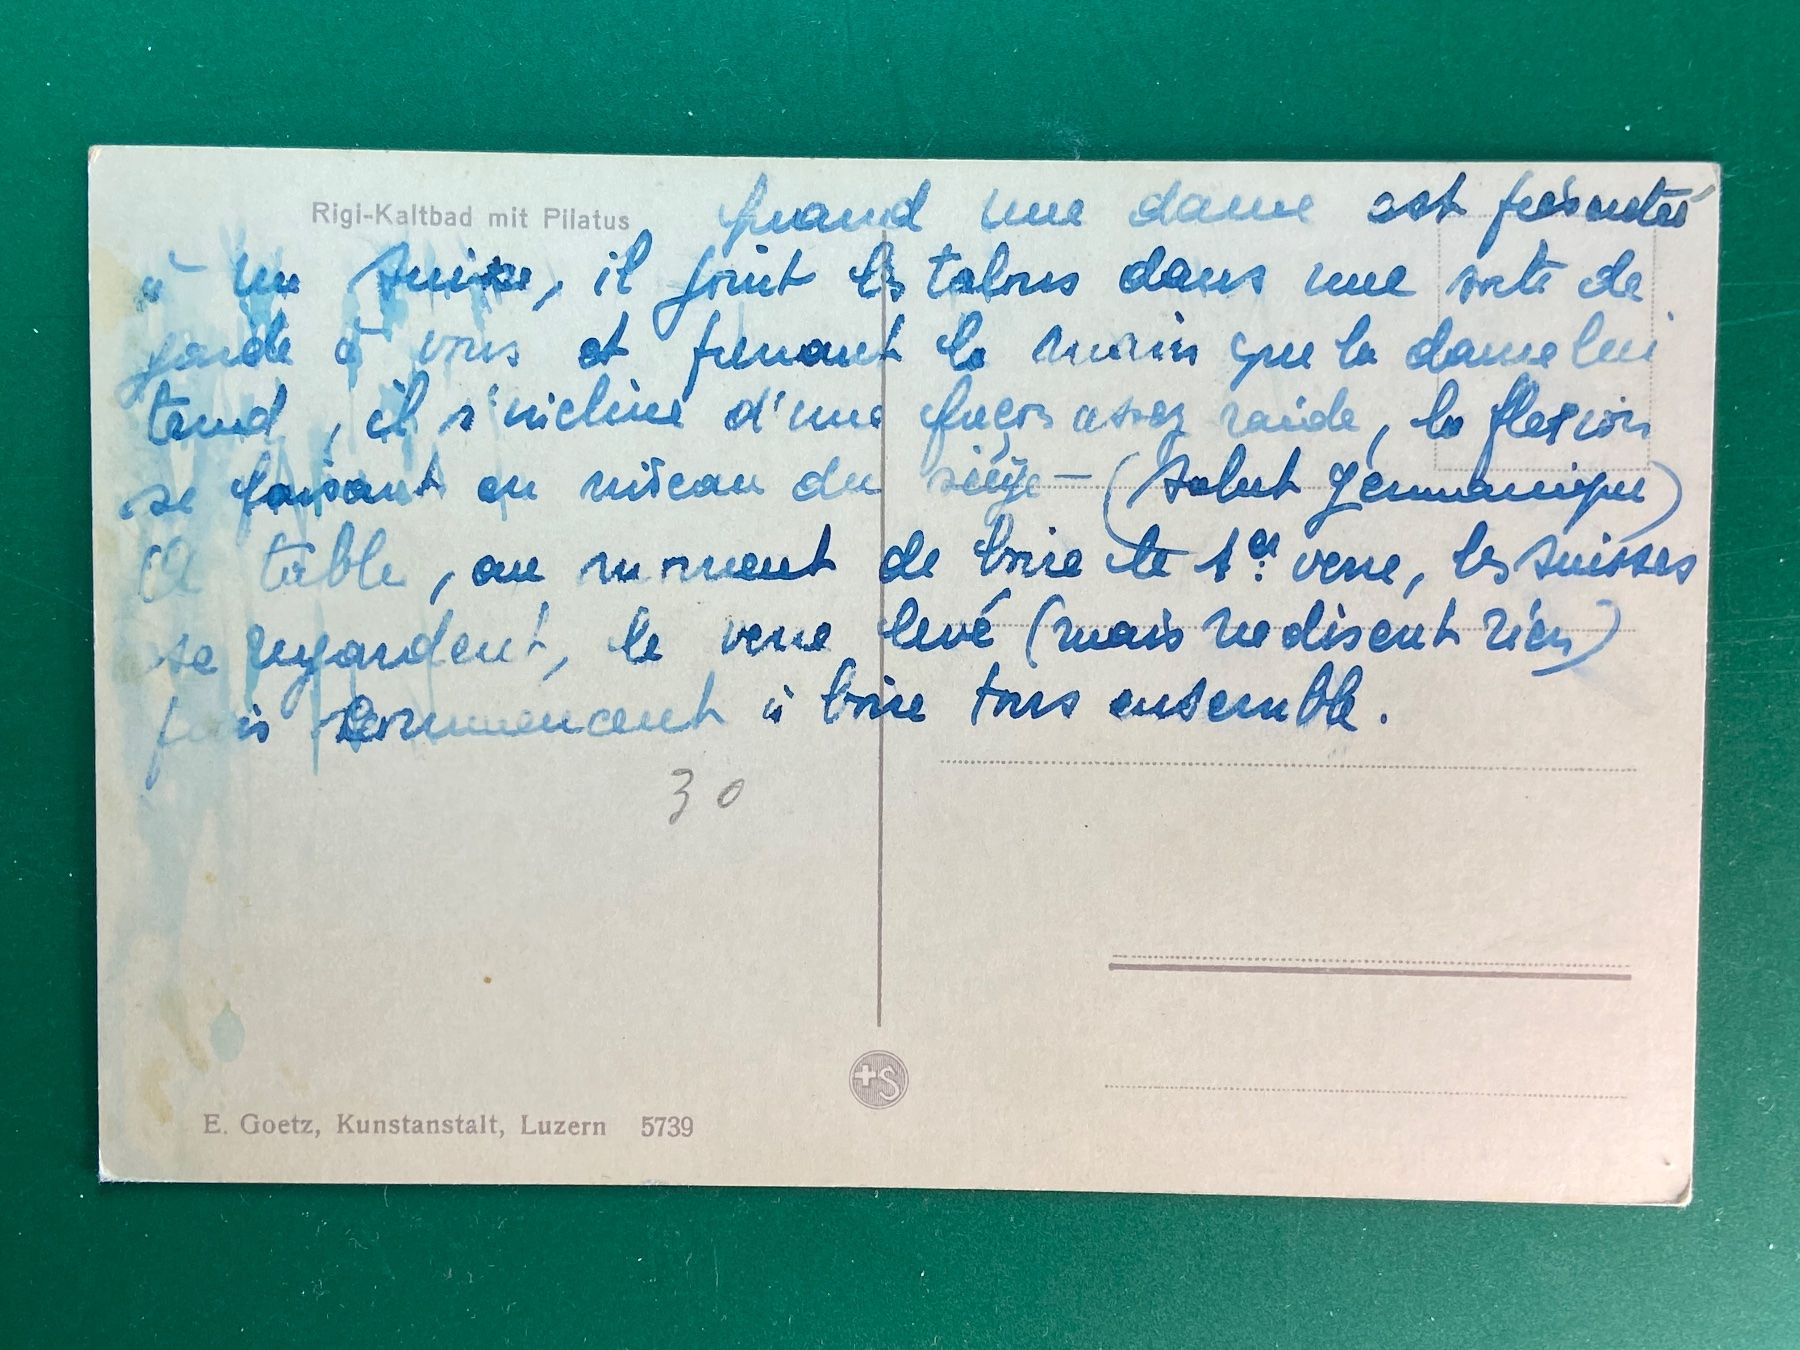 Rigi-Kaltbad mit Pilatus
Quand une dame est présentée
à un suisse, il joint les talons dans une sorte de
garde à vous et prenant la main que la dame lui
tend, il s'incline d'une façon assez raide, la flexion
se faisant au niveau du siège – (salut germanique)
A table, au moment de boire le 1er verre, les suisses
se regardent, le verre levé (mais ne disent rien)
puis commencent à boire tous ensemble.
30
+S
E. Goetz, Kunstanstalt, Luzern 5739